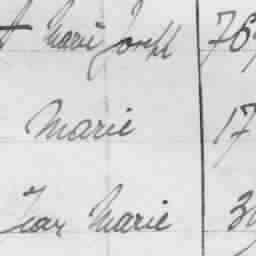 Marie Joseph 76
Marie 17
Jean Marie 3